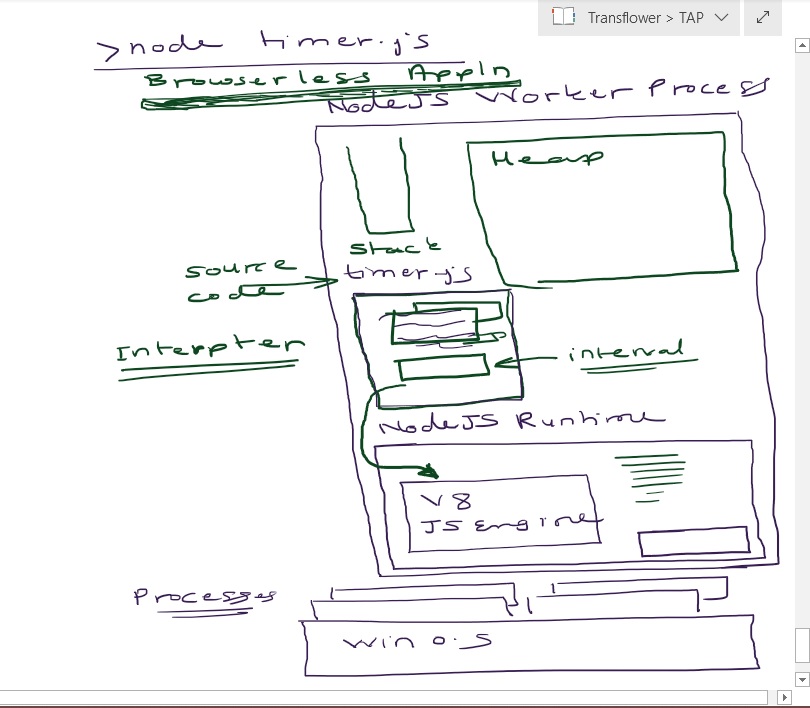 Transflower > TAP
>node timer.js
Browserless Appln
NodeJS Worker Process
Heap
Stack
source
code
timer.js
Interpter
interval
NodeJS Runtime
V8
JS Engine
Processes
Win O.S